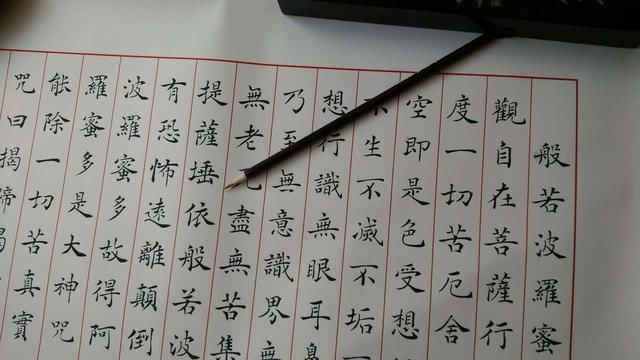 般若波羅蜜
觀自在菩薩行
度一切苦厄舍
空即是色受想
不生不滅不垢
想行識無眼耳
乃至無意識界無
無老死盡無苦集
提薩埵依般若波
有恐怖遠離顛倒
波羅蜜多故得阿
羅蜜多是大神咒
能除一切苦真實
咒曰揭諦揭